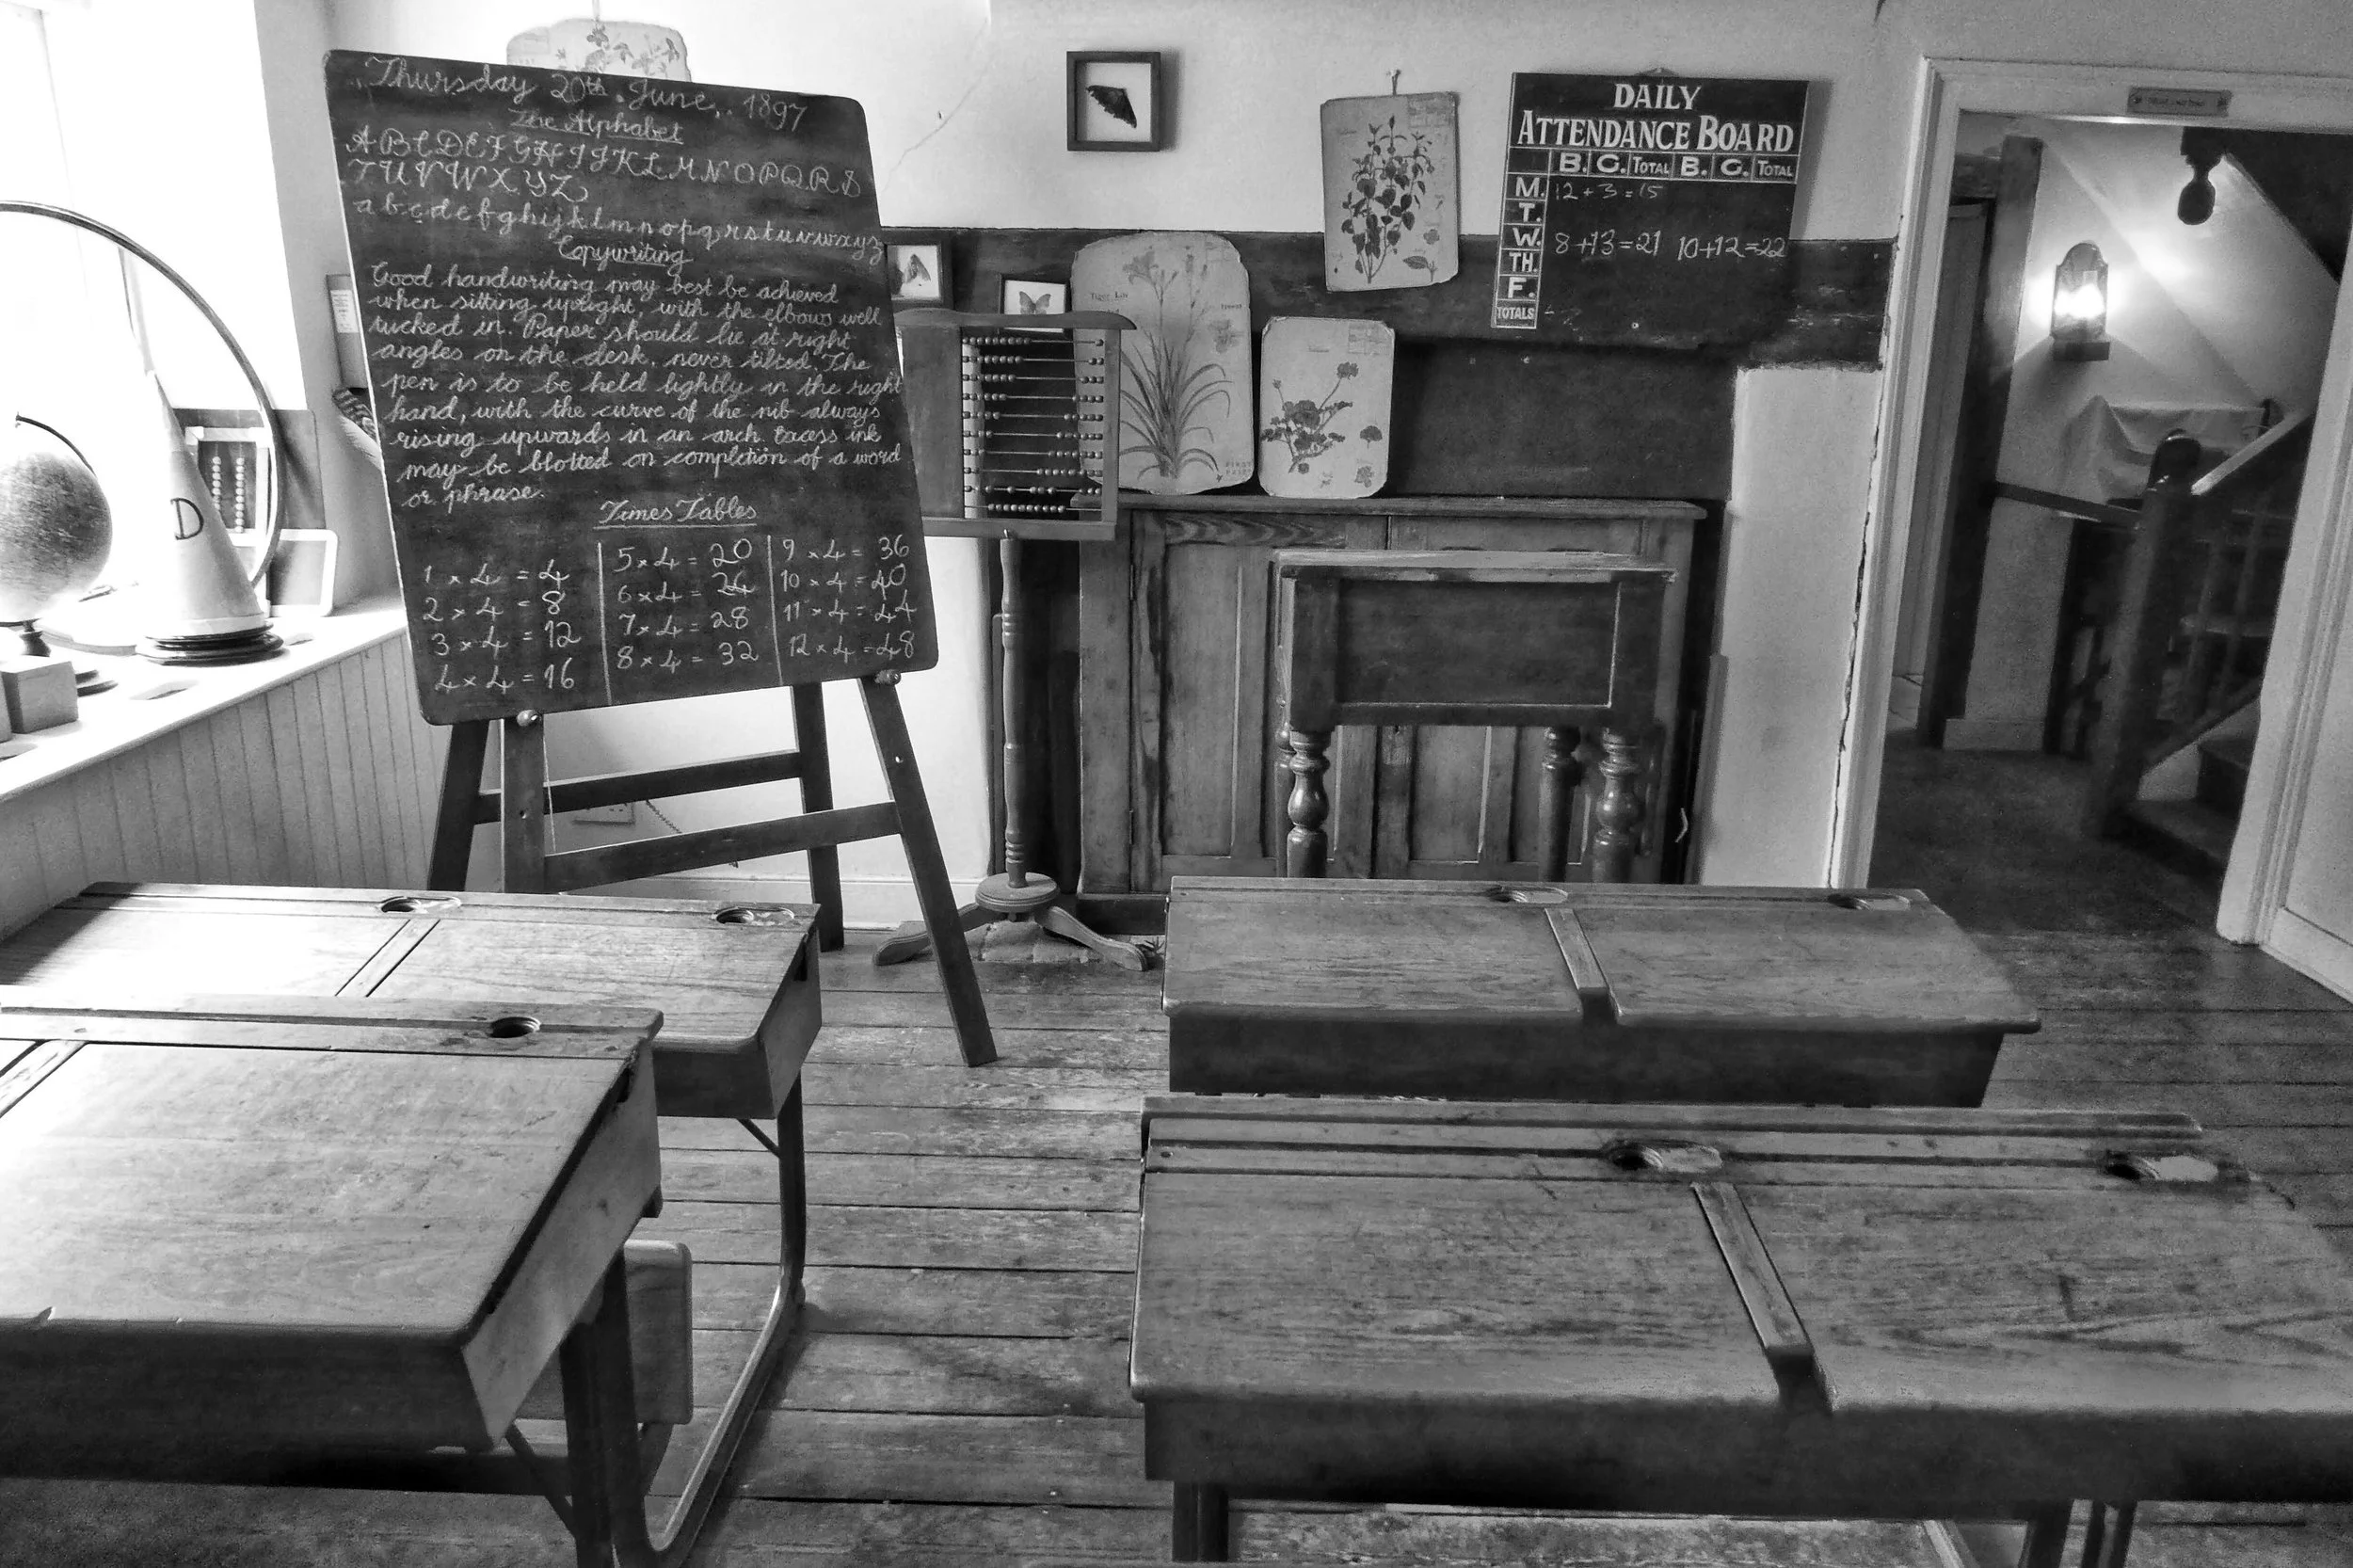 Thursday 20th June, 1897
The Alphabet
A B C D E F G H I J K L M N O P Q R S
T U V W X Y Z
a b c d e f g h i j k l m n o p q r s t u v w x y z
Copywriting
Good handwriting may best be achieved
when sitting upright, with the elbows well
tucked in. Paper should lie at right
angles on the desk, never tilted. The
pen is to be held lightly in the right
hand, with the curve of the nib always
rising upwards in an arch. Excess ink
may be blotted on completion of a word
or phrase.
Times Tables
1 x 4 = 4
2 x 4 = 8
3 x 4 = 12
4 x 4 = 16
5 x 4 = 20
6 x 4 = 24
7 x 4 = 28
8 x 4 = 32
9 x 4 = 36
10 x 4 = 40
11 x 4 = 44
12 x 4 = 48
D
Tiger Lily
DAILY
ATTENDANCE BOARD
B. G. TOTAL B. G. TOTAL
M. 12 + 3 = 15
T.
W. 8 + 13 = 21 10 + 12 = 22
TH.
F.
TOTALS